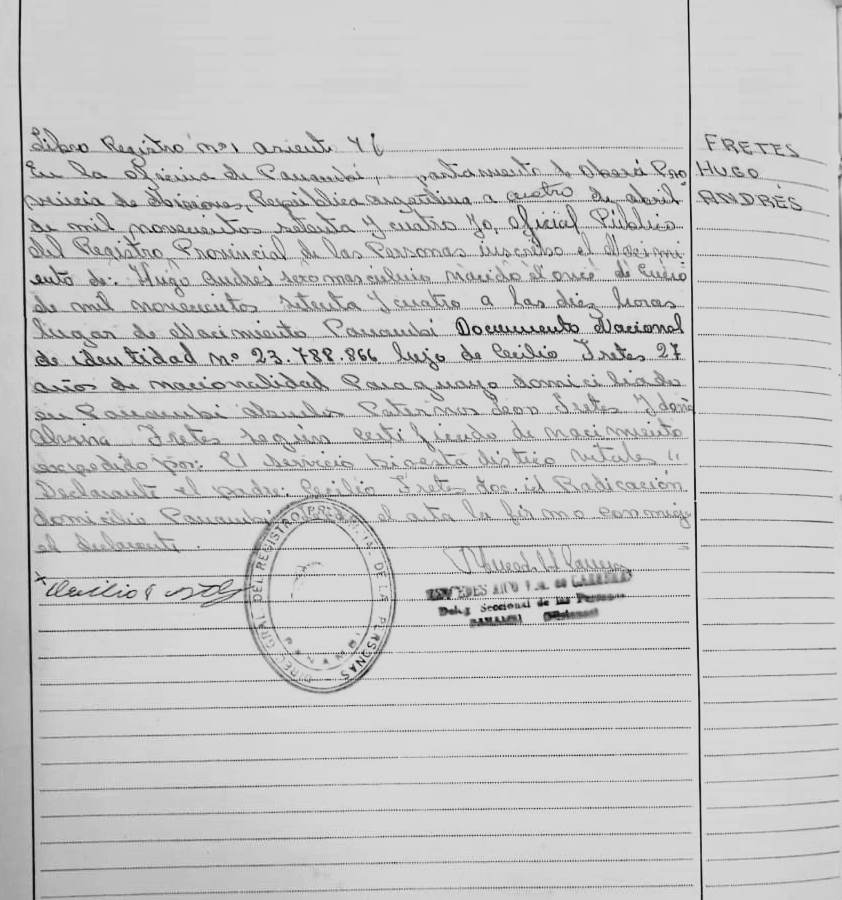 Libro Registro nº1 asiento 46
En la Oficina de Panambi, partamento de Oberá Pro
vincia de Misiones, República Argentina a cuatro de abril
de mil novecientos setenta y cuatro yo, Oficial Público
del Registro Provincial de las Personas inscribo el Nacimi
ento de: Hugo Andrés sexo masculino nacido el once de Enero
de mil novecientos setenta y cuatro a las diez horas
lugar de Nacimiento Panambi Documento Nacional
de identidad nº 23.788.866 hijo de Cecilio Fretes 27
años de nacionalidad Paraguayo domiciliado
en Panambi abuelos Paternos Leon Fretes y doña
Fretes según certificado de nacimiento
expedido por: El servicio vitales "
Declarante el padre: Cecilio Fretes doc. id Radicación
domicilio Panambi el acta la firma conmigo
el declarante.
FRETES
HUGO
ANDRÉS
DIREC. GRAL DEL REGISTRO DE LA PERSONAS
Deleg. Seccional de las Personas
PANAMBI (Misiones)